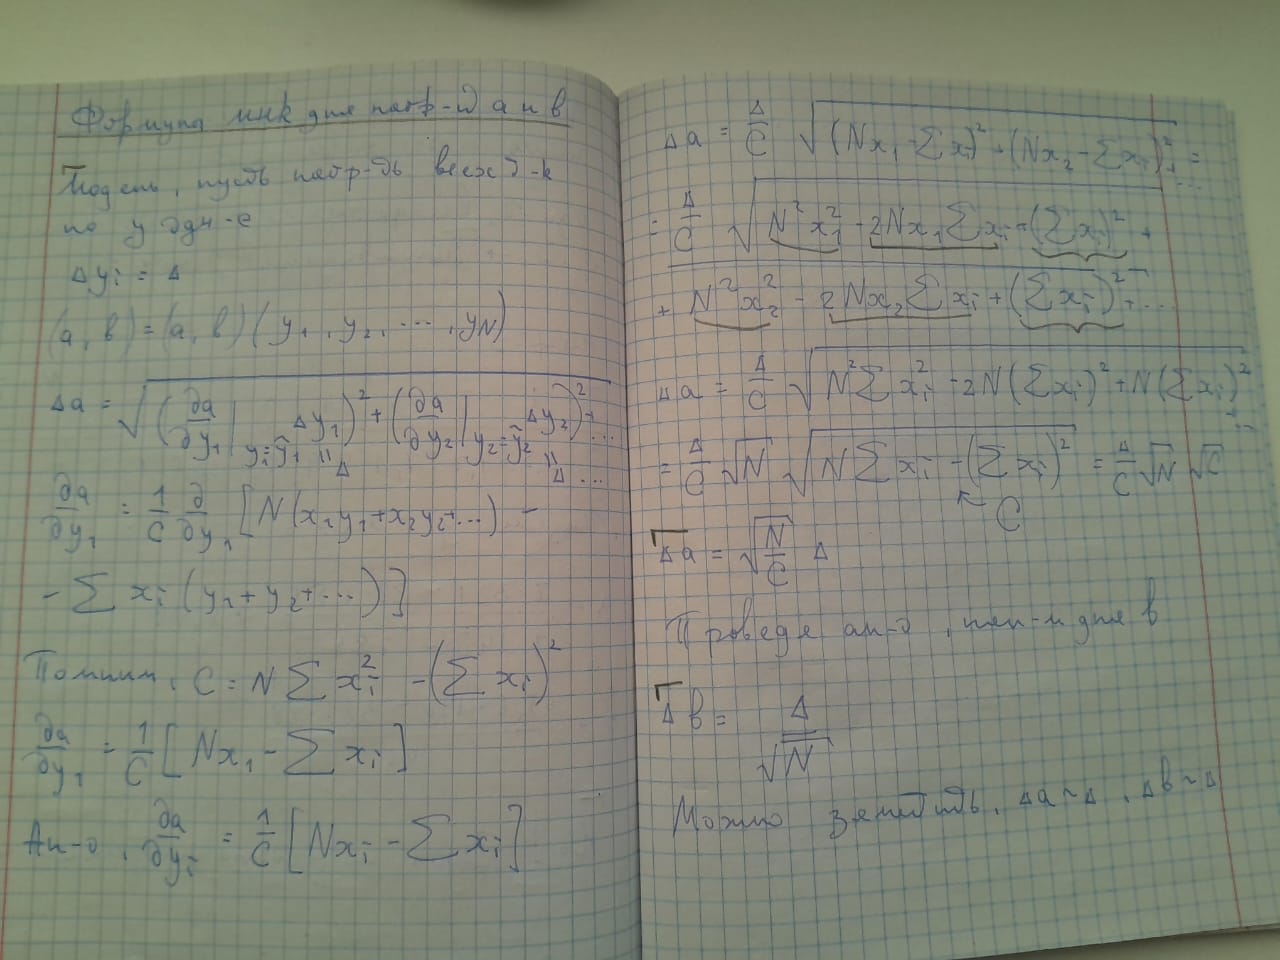 Формула мнк для погр-й a и b
Модель, пусть погр-ть всех д-х
по y одн-е
Δyᵢ = Δ
(a, b) = (a, b) (y₁, y₂, ..., y_N)
Δa = √((∂a/∂y₁|y₁=ỹ₁ Δy₁)² + (∂a/∂y₂|y₂=ỹ₂ Δy₂)² + ...
∥ Δ ∥ Δ ...
∂a/∂y₁ = 1/C ∂/∂y₁ [N(x₁y₁+x₂y₂+...) −
− ∑ xᵢ (y₁ + y₂ + ...)]
Помним, C = N ∑ xᵢ² − (∑ xᵢ)²
∂a/∂y₁ = 1/C [Nx₁ − ∑ xᵢ]
Ан-о, ∂a/∂yᵢ = 1/C [Nxᵢ − ∑ xᵢ]
Δa = Δ/C √((Nx₁ − ∑xᵢ)² + (Nx₂ − ∑xᵢ)² + ... =
= Δ/C √(N²x₁² − 2Nx₁∑xᵢ + (∑xᵢ)² +
+ N²x₂² − 2Nx₂∑xᵢ + (∑xᵢ)² + ...
Δa = Δ/C √(N²∑xᵢ² − 2N(∑xᵢ)² + N(∑xᵢ)² =
= Δ/C √N √(N∑xᵢ − (∑xᵢ)² = Δ/C √N √C
C
Δa = √(N/C) Δ
Проведя ан-о, для b
Δb = Δ/√N
Можно заметить, Δa ~ Δ, Δb ~ Δ